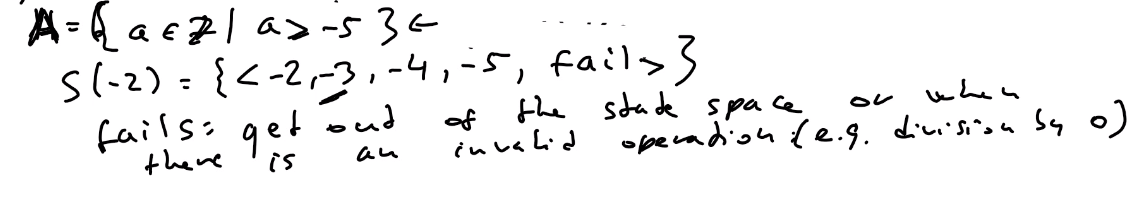 A = { a ∈ ℤ | a > -5 } ←
S(-2) = { < -2, -3, -4, -5, fail > }
fails: get out of the state space or when
there is an invalid operation (e.g. division by 0)